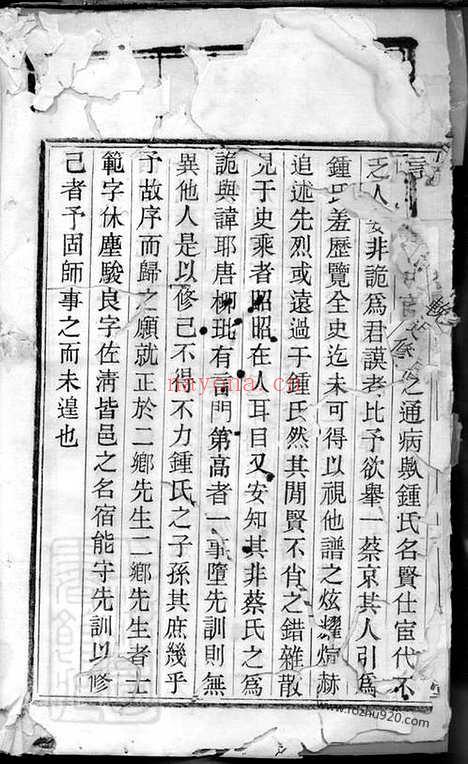 言之通病歟鍾氏名賢仕宦代不
乏人非詭爲君謨者比予欲舉一蔡京其人引爲
鍾氏羞歷覽全史迄未可得以視他譜之炫耀煊赫
追述先烈或遠過于鍾氏然其間賢不肖之錯雜散
見于史乘者昭昭在人耳目又安知其非蔡氏之爲
詭與諱耶唐柳玭有言門第高者一事墮先訓則無
異他人是以修己不得不力鍾氏之子孫其庶幾乎
予故序而歸之願就正於二鄉先生二鄉先生者士
範字休塵駿良字佐淸皆邑之名宿能守先訓以修
己者予固師事之而未遑也
nayona.cn
www.rozhu920.com